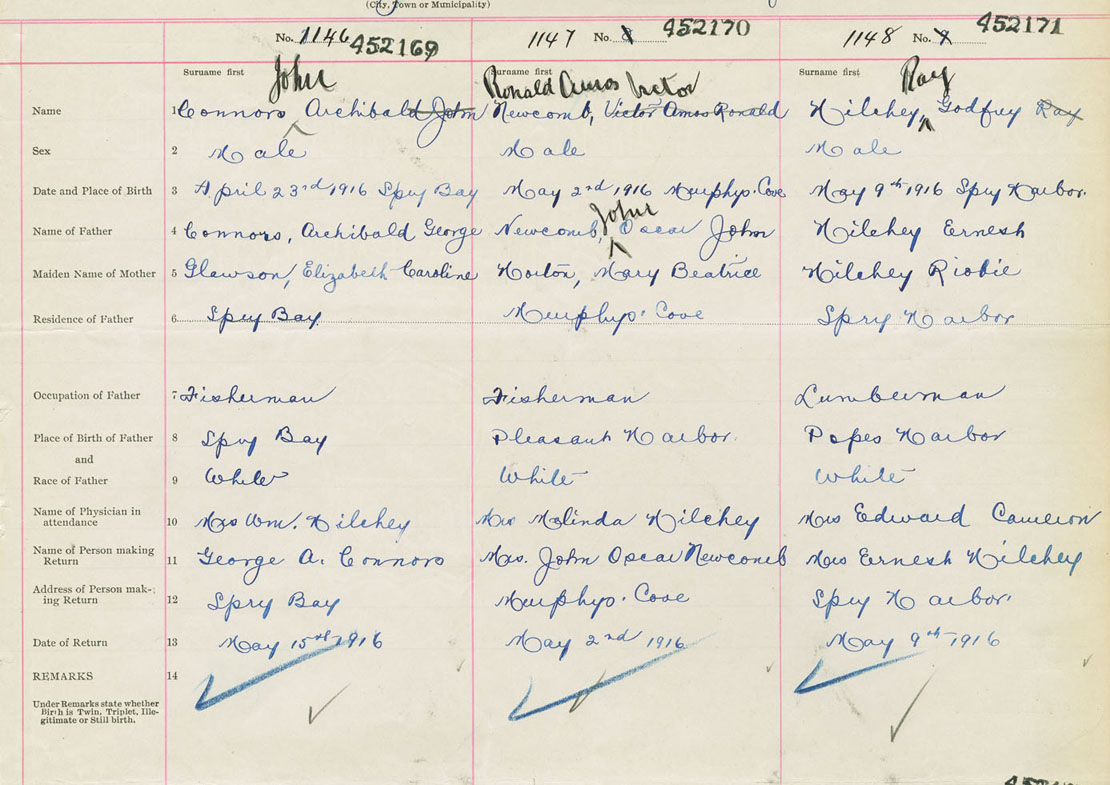 (City, Town or Municipality)
No. 1146 452169 1147 No. 8 452170 1148 No. 9 452171
Surname first Surname first Surname first
John Ronald Amos Victor Ray
Name 1 Connors Archibald John Newcomb, Victor Amos Ronald Hilchey, Godfrey Ray
Sex 2 Male Male Male
Date and Place of Birth 3 April 23rd 1916 Spry Bay May 2nd 1916 Murphys Cove May 9th 1916 Spry Harbor.
John
Name of Father 4 Connors, Archibald George Newcomb, Oscar John Hilchey Ernest
Maiden Name of Mother 5 Glawson, Elizabeth Caroline Horton, Mary Beatrice Hilchey
Residence of Father 6 Spry Bay. Murphys Cove Spry Harbor
Occupation of Father 7 Fisherman Fisherman Lumberman
Place of Birth of Father 8 Spry Bay Pleasant Harbor. Popes Harbor
and
Race of Father 9 White White White
Name of Physician in
attendance 10 Mrs Wm. Hilchey Mrs Malinda Hilchey Mrs Edward Cameron
Name of Person making
Return 11 George A. Connors Mrs. John Oscar Newcomb Mrs Ernest Hilchey
Address of Person mak-
ing Return 12 Spry Bay Murphys Cove Spry Harbor.
Date of Return 13 May 15th 1916 May 2nd 1916 May 9th 1916
REMARKS 14
Under Remarks state whether
Birth is Twin, Triplet, Ille-
gitimate or Still birth.